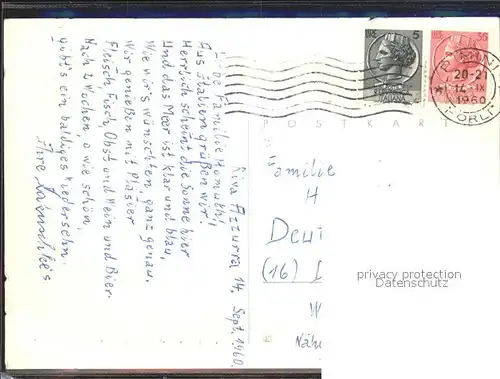 Riva Azzurra 14. Sept. 1960.
Liebe Familie Homuth!
Aus Italien grüßen wir.
Herrlich scheint die Sonne hier
Und das Meer ist klar und blau,
Wie wir's wünschten ganz genau.
Wir genießen mit Pläsier
Fleisch, Fisch, Obst und Wein und Bier.
Nach 2 Wochen, o wie schön,
gibt's ein baldiges Wiedersehn.
Ihre
LIRE 5
ITALIANA
LIRE 35
20-21
14 IX
1960
FORLI
POSTKARTE
Familie
H
Deut
(16)
W
Näh
privacy protection
Datenschutz